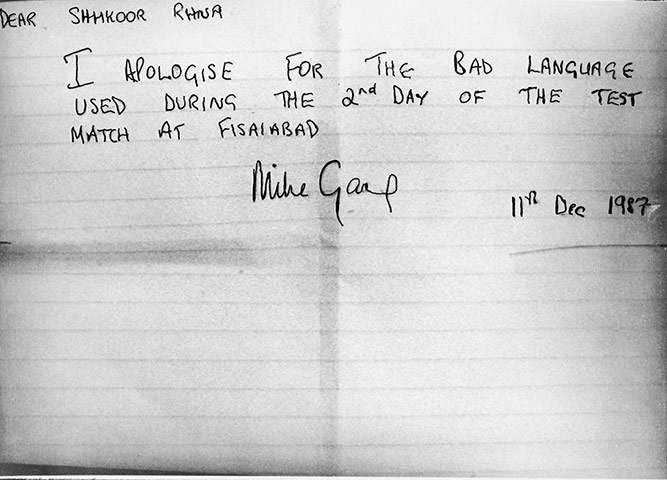 DEAR SHAKOOR RANA
I APOLOGISE FOR THE BAD LANGUAGE
USED DURING THE 2nd DAY OF THE TEST
MATCH AT FISALABAD
Mike Gatting
11th Dec 1987